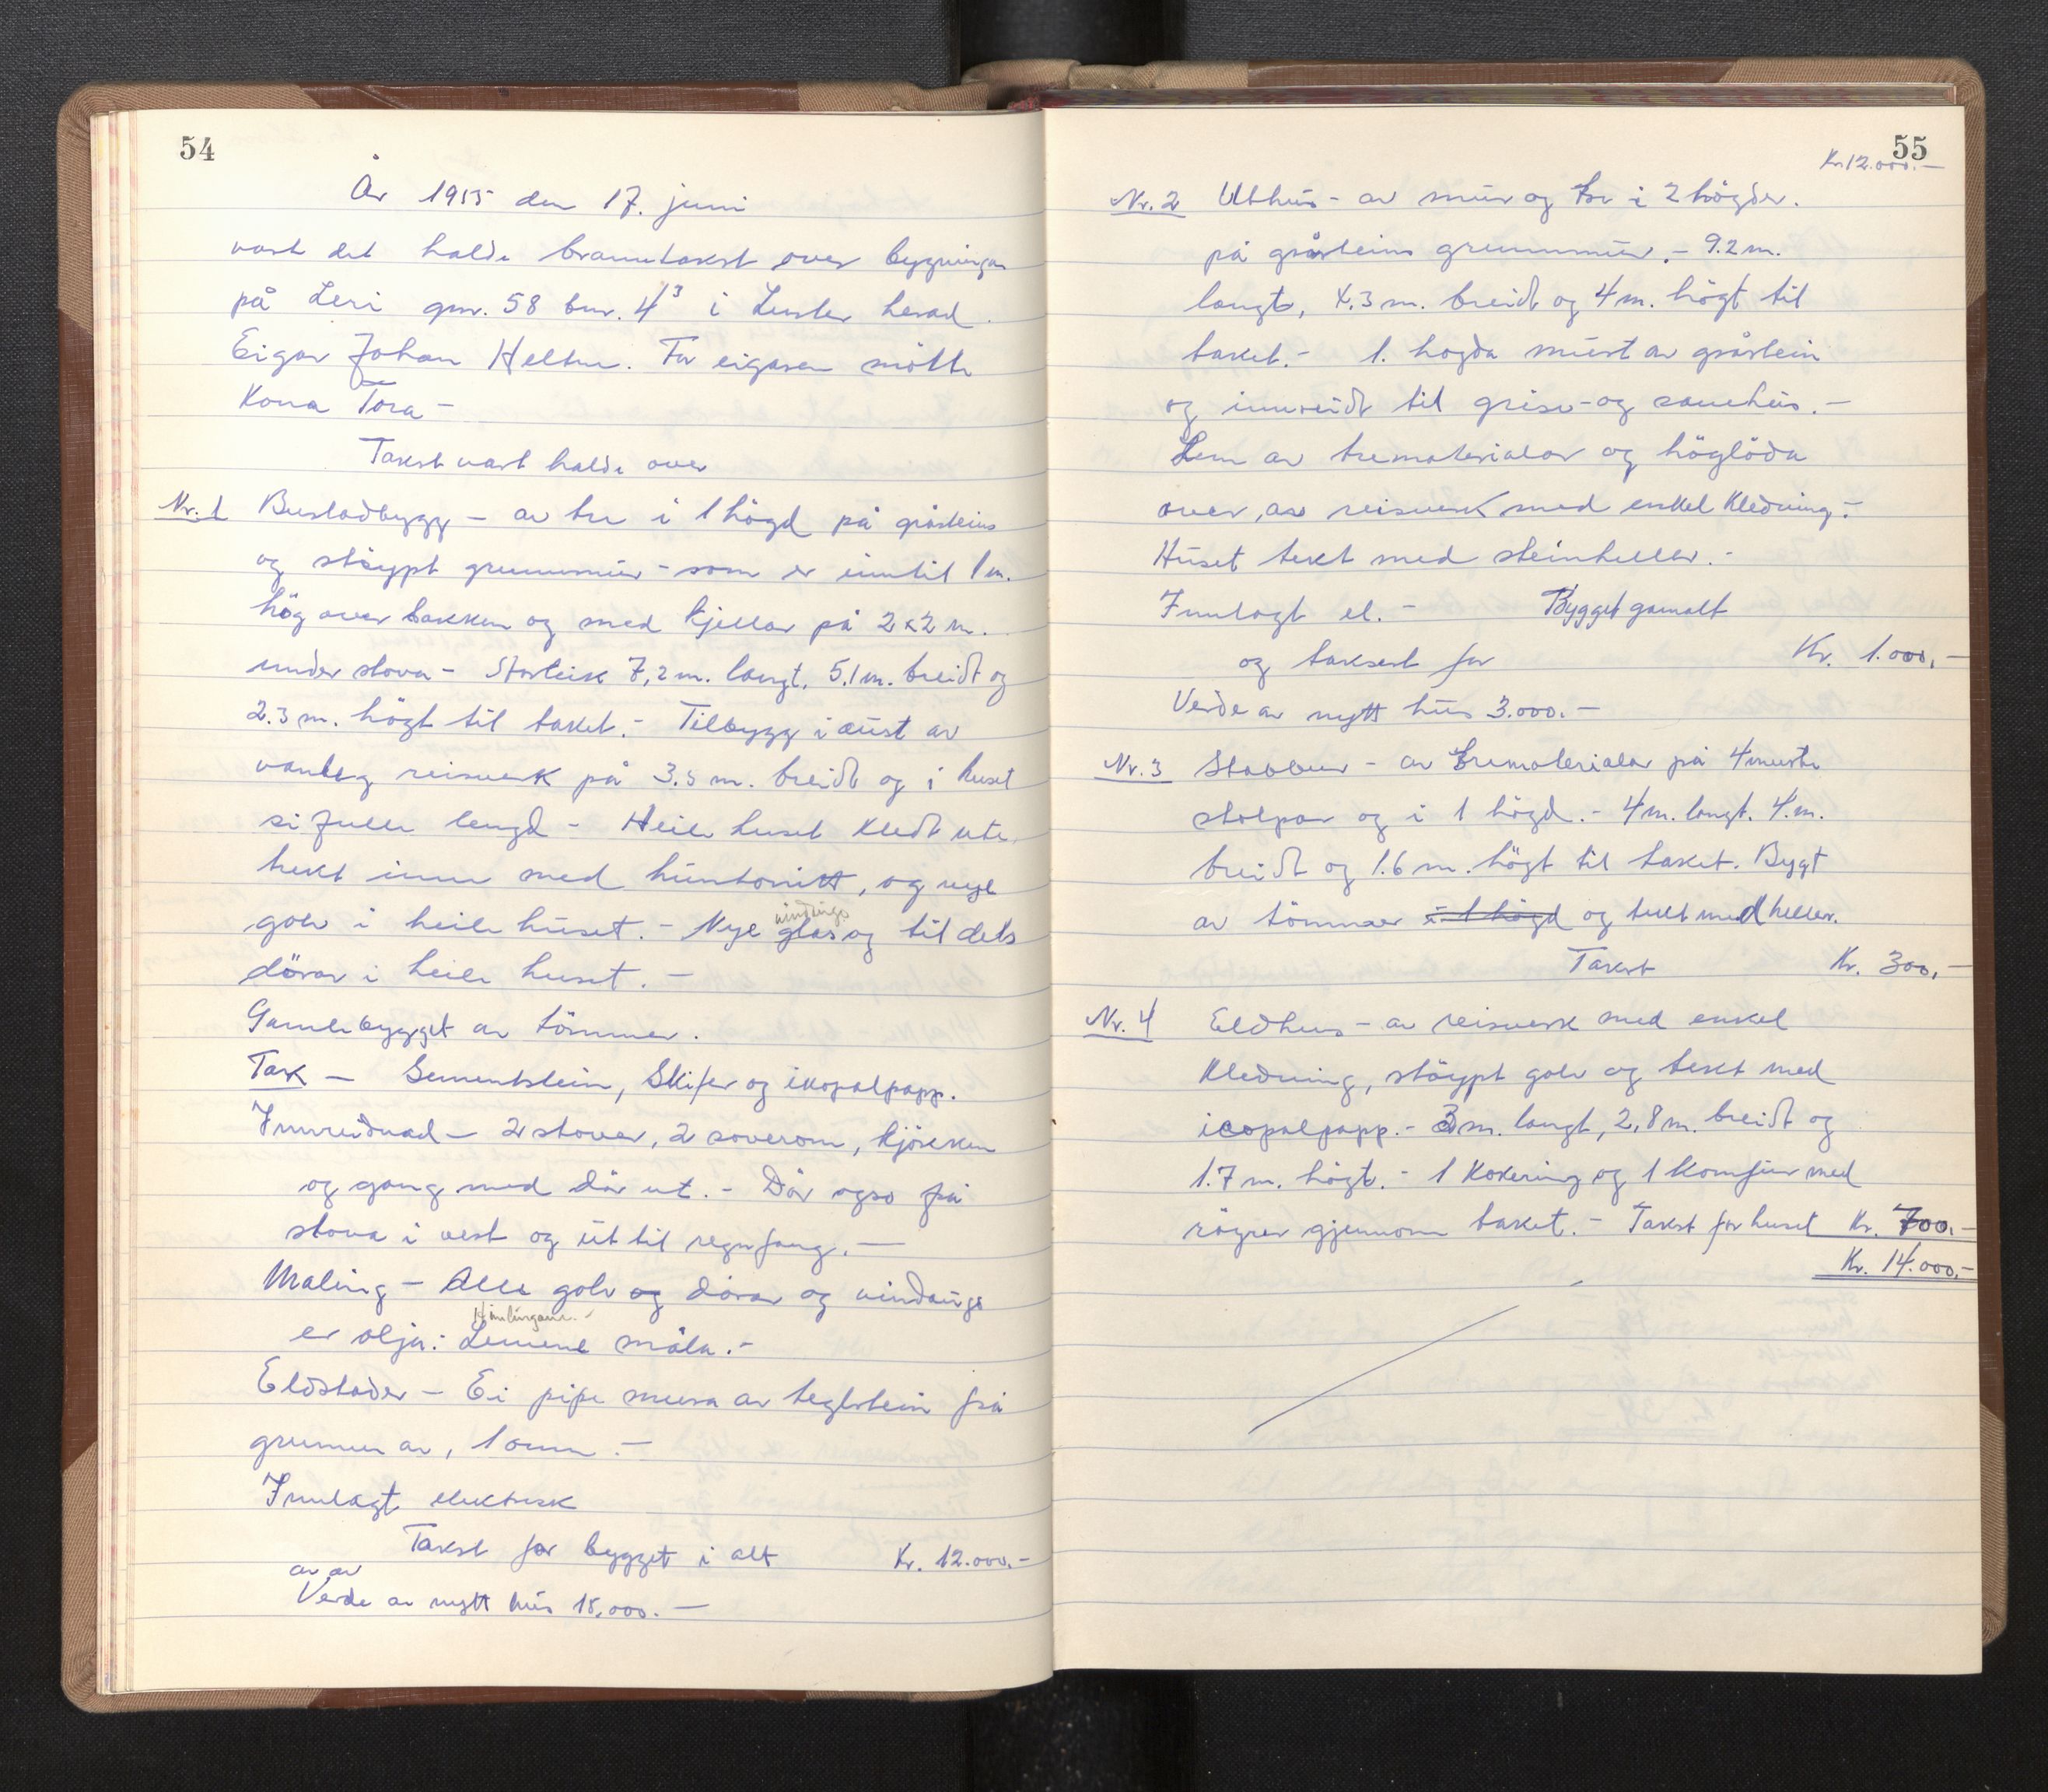 54
År 1955 den 17. juni
vart det halde branntakst over bygningar
på Leri gnr. 58 bnr. 4³ i Luster herad.
Eigar Johan Heltne. For eigaren møtte
Kona Tora –
Takst vart halde over
Nr. 1 Bustadbygg – av tre i 1 högd på gråsteins
og støypt grunnmur – som er inntil 1 m.
hög over bakken og med kjellar på 2x2 m.
under stova – Storleik 7,2 m. langt, 5.1 m. breidt og
2.3 m. högt til taket. – Tilbygg i aust av
vanleg reisverk på 3.5 m. breidt og i huset
si fulle lengd – Heile huset kledt ute,
trekt inne med huntonitt, og nye
golv i heile huset. – Nye vindaugs glas og til dels
dörar i heile huset. –
Gamlebygget av tömmer.
Tak – Sementstein, Skifer og ikopalpapp.
Innreidnad – 2 stover, 2 soverom, kjökken
og gang med dör ut. – Dör også frå
stova i vest og ut til regnfang. –
Maling – Alle golv og dörar og vindaugo
er olja: Lemene Himlingane. – måla. –
Eldstader – Ei pipe mura av teglstein frå
grunnen av, 1 omn. –
Innlagt elektrisk
Takst for bygget i alt Kr. 12.000.–
av av
Verde av nytt hus 18.000. –
55
Kr. 12.000.–
Nr. 2 Uthus – av mur og tre i 2 högder.
på gråsteins grunnmur. – 9.2 m.
langt, 4.3 m. breidt og 4 m. högt til
taket. – 1. högda murt av gråstein
og innreidt til grise- og sauehus. –
Lem av trematerialar og höglöda
over, av reisverk med enkel kledning. –
Huset tekt med steinheller. –
Innlagt el. – Bygget gamalt
og taksert for Kr. 1.000,–
Verde av nytt hus 3.000. –
Nr. 3 Stabbur – av trematerialar på 4 murte
stolpar og i 1 högd. – 4 m. langt. 4. m.
breidt og 1.6 m. högt til taket. Bygt
av tömmer i 1 högd og tekt med heller.
Takst Kr. 300,–
Nr. 4 Eldhus – av reisverk med enkel
kledning, støypt golv og tekt med
icopalpapp. – 3 m. langt, 2,8 m. breidt og
1.7 m. högt. – 1 kokering og 1 komfur med
rögrör gjennom taket. – Takst for huset Kr. 700.–
Kr. 14.000,–